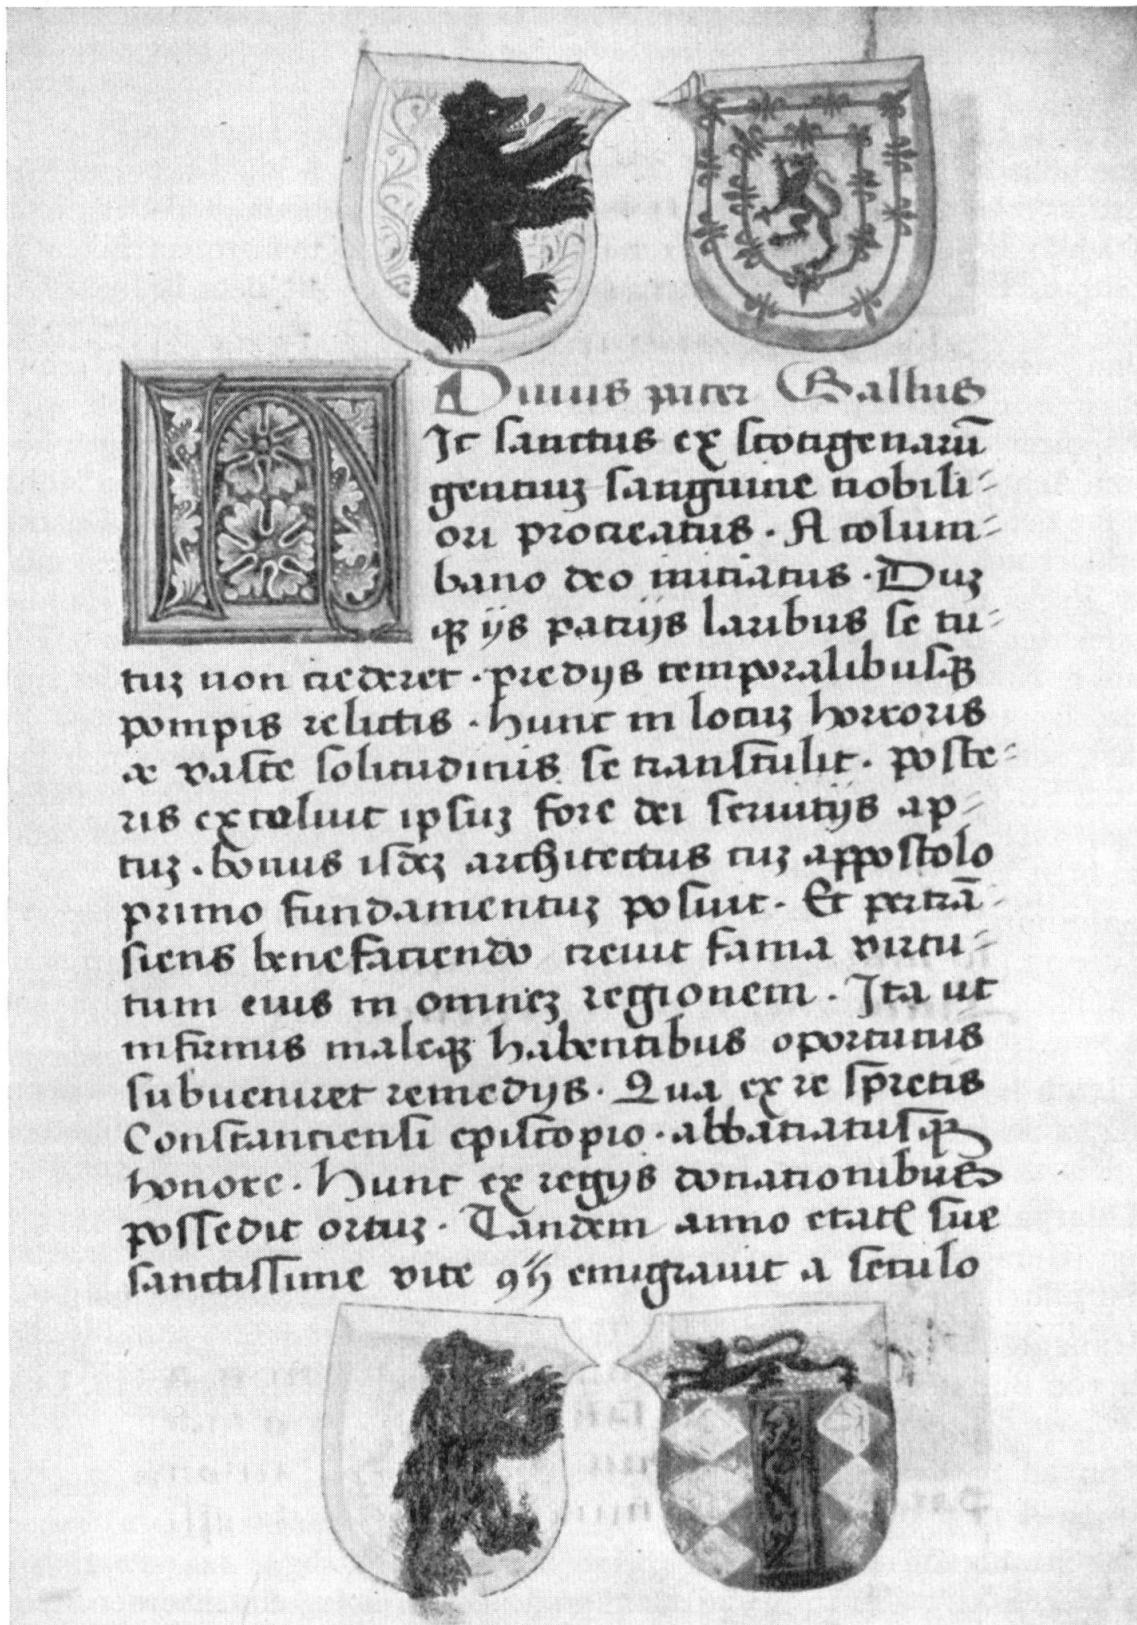 Diuus pater Gallus
Ic sanctus ex scotigenarū
gentiuꝫ sanguine nobili-
ori procreatus. A colum-
bano deo initiatus. Duꝫ
qꝫ ijs patrijs laribus se tu-
tuꝫ non crederet. predijs temporalibusqꝫ
pompis relictis. hunc in locuꝫ horroris
& vaste solitudinis se transtulit. poste-
ris excoluit ipsuꝫ fore dei seruitijs ap-
tuꝫ. bonus isdeꝫ architectus cuꝫ appostolo
primo fundamentuꝫ posuit. Et pertrā-
siens benefaciendo creuit fama virtu-
tum eius in omneꝫ regionem. Ita ut
infirmis maleqꝫ habentibus oportunis
subueniret remedijs. Qua ex re spretis
Constanciensi episcopio. abbaciatusqꝫ
honore. Hunc ex regijs donationibus
possedit ortuꝫ. Tandem anno etatꝭ sue
sanctissime vite emigrauit a seculo